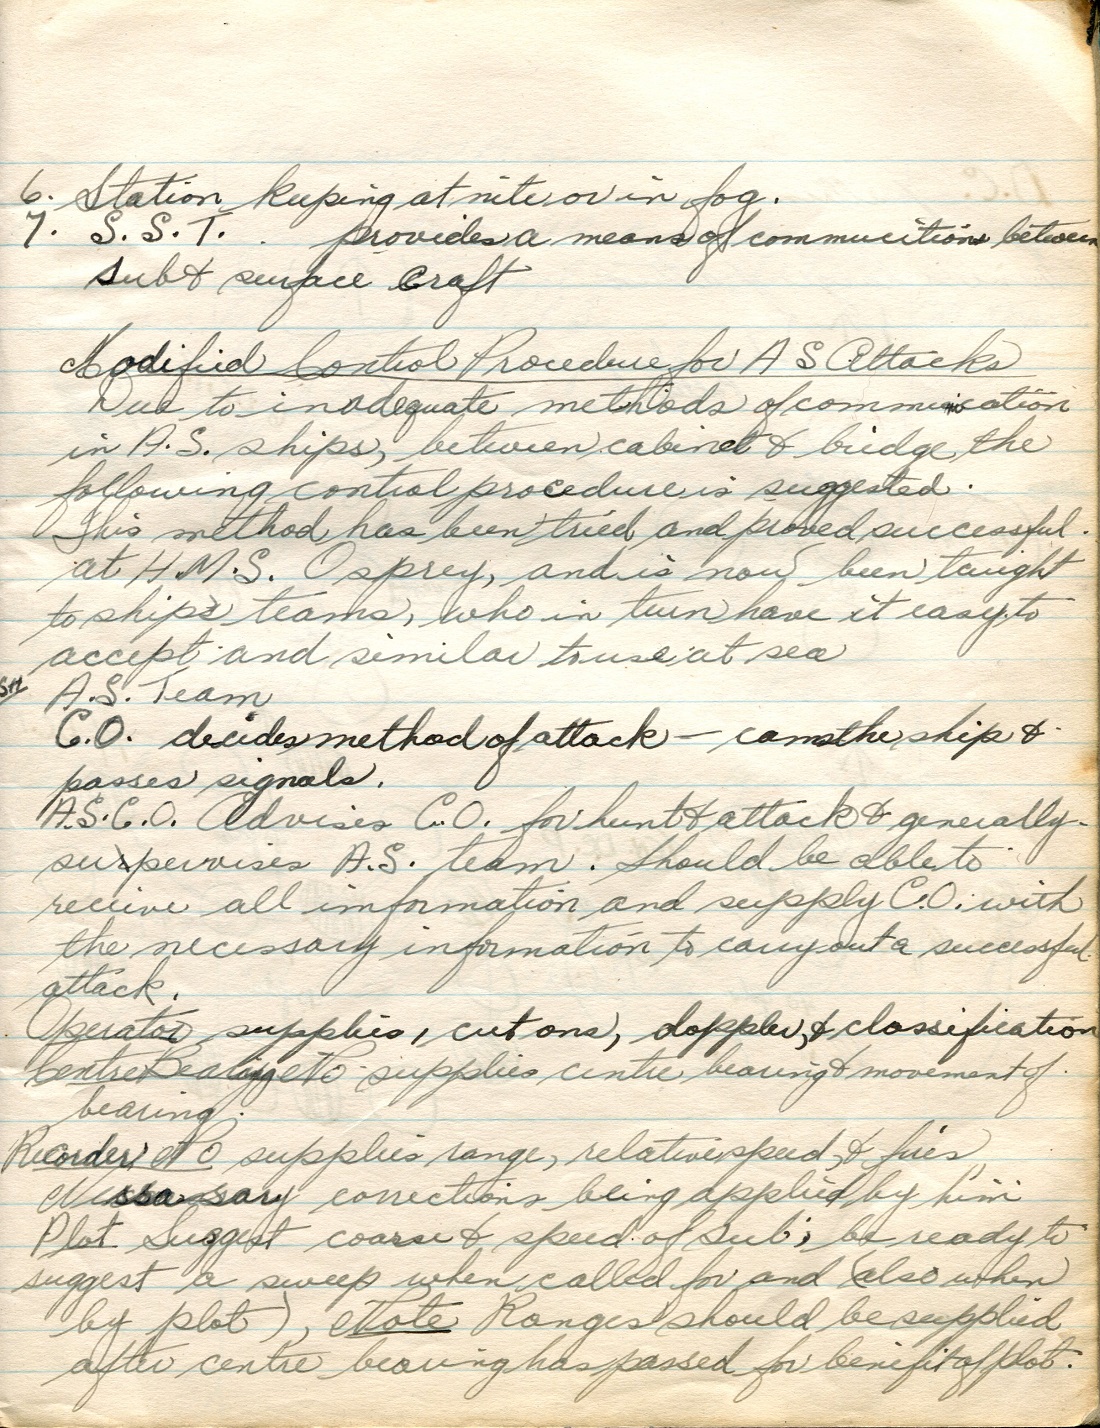 6. Station keeping at nite or in fog.
7. S.S.T. . provides a means of commucitions between
Sub & surface Craft
Modified Control Procedure for A S Attacks
Due to inadequate methods of communication
in A.S. ships, between cabinet & bridge, the
following control procedure is suggested.
This method has been tried and proved successful.
at H.M.S. Osprey, and is now been taught
to ships teams, who in turn have it easy to
accept and similar to use at sea
A.S. Team
C.O. decides method of attack — cons the ship &
passes signals.
A.S.C.O. Advises C.O. for hunt & attack & generally
supervises A.S. team. Should be able to
receive all information and supply C.O. with
the necessary information to carry out a successful
attack.
Operator supplies, cut ons, doppler, & classification
Centre Bearing supplies centre bearing & movement of
bearing.
Recorder supplies range, relative speed, & fires,
corrections being applied by him
Plot Suggest coarse & speed of Sub; be ready to
suggest a sweep when called for and (also when
by plot), Note Ranges should be supplied
after centre bearing has passed for benifit of plot.